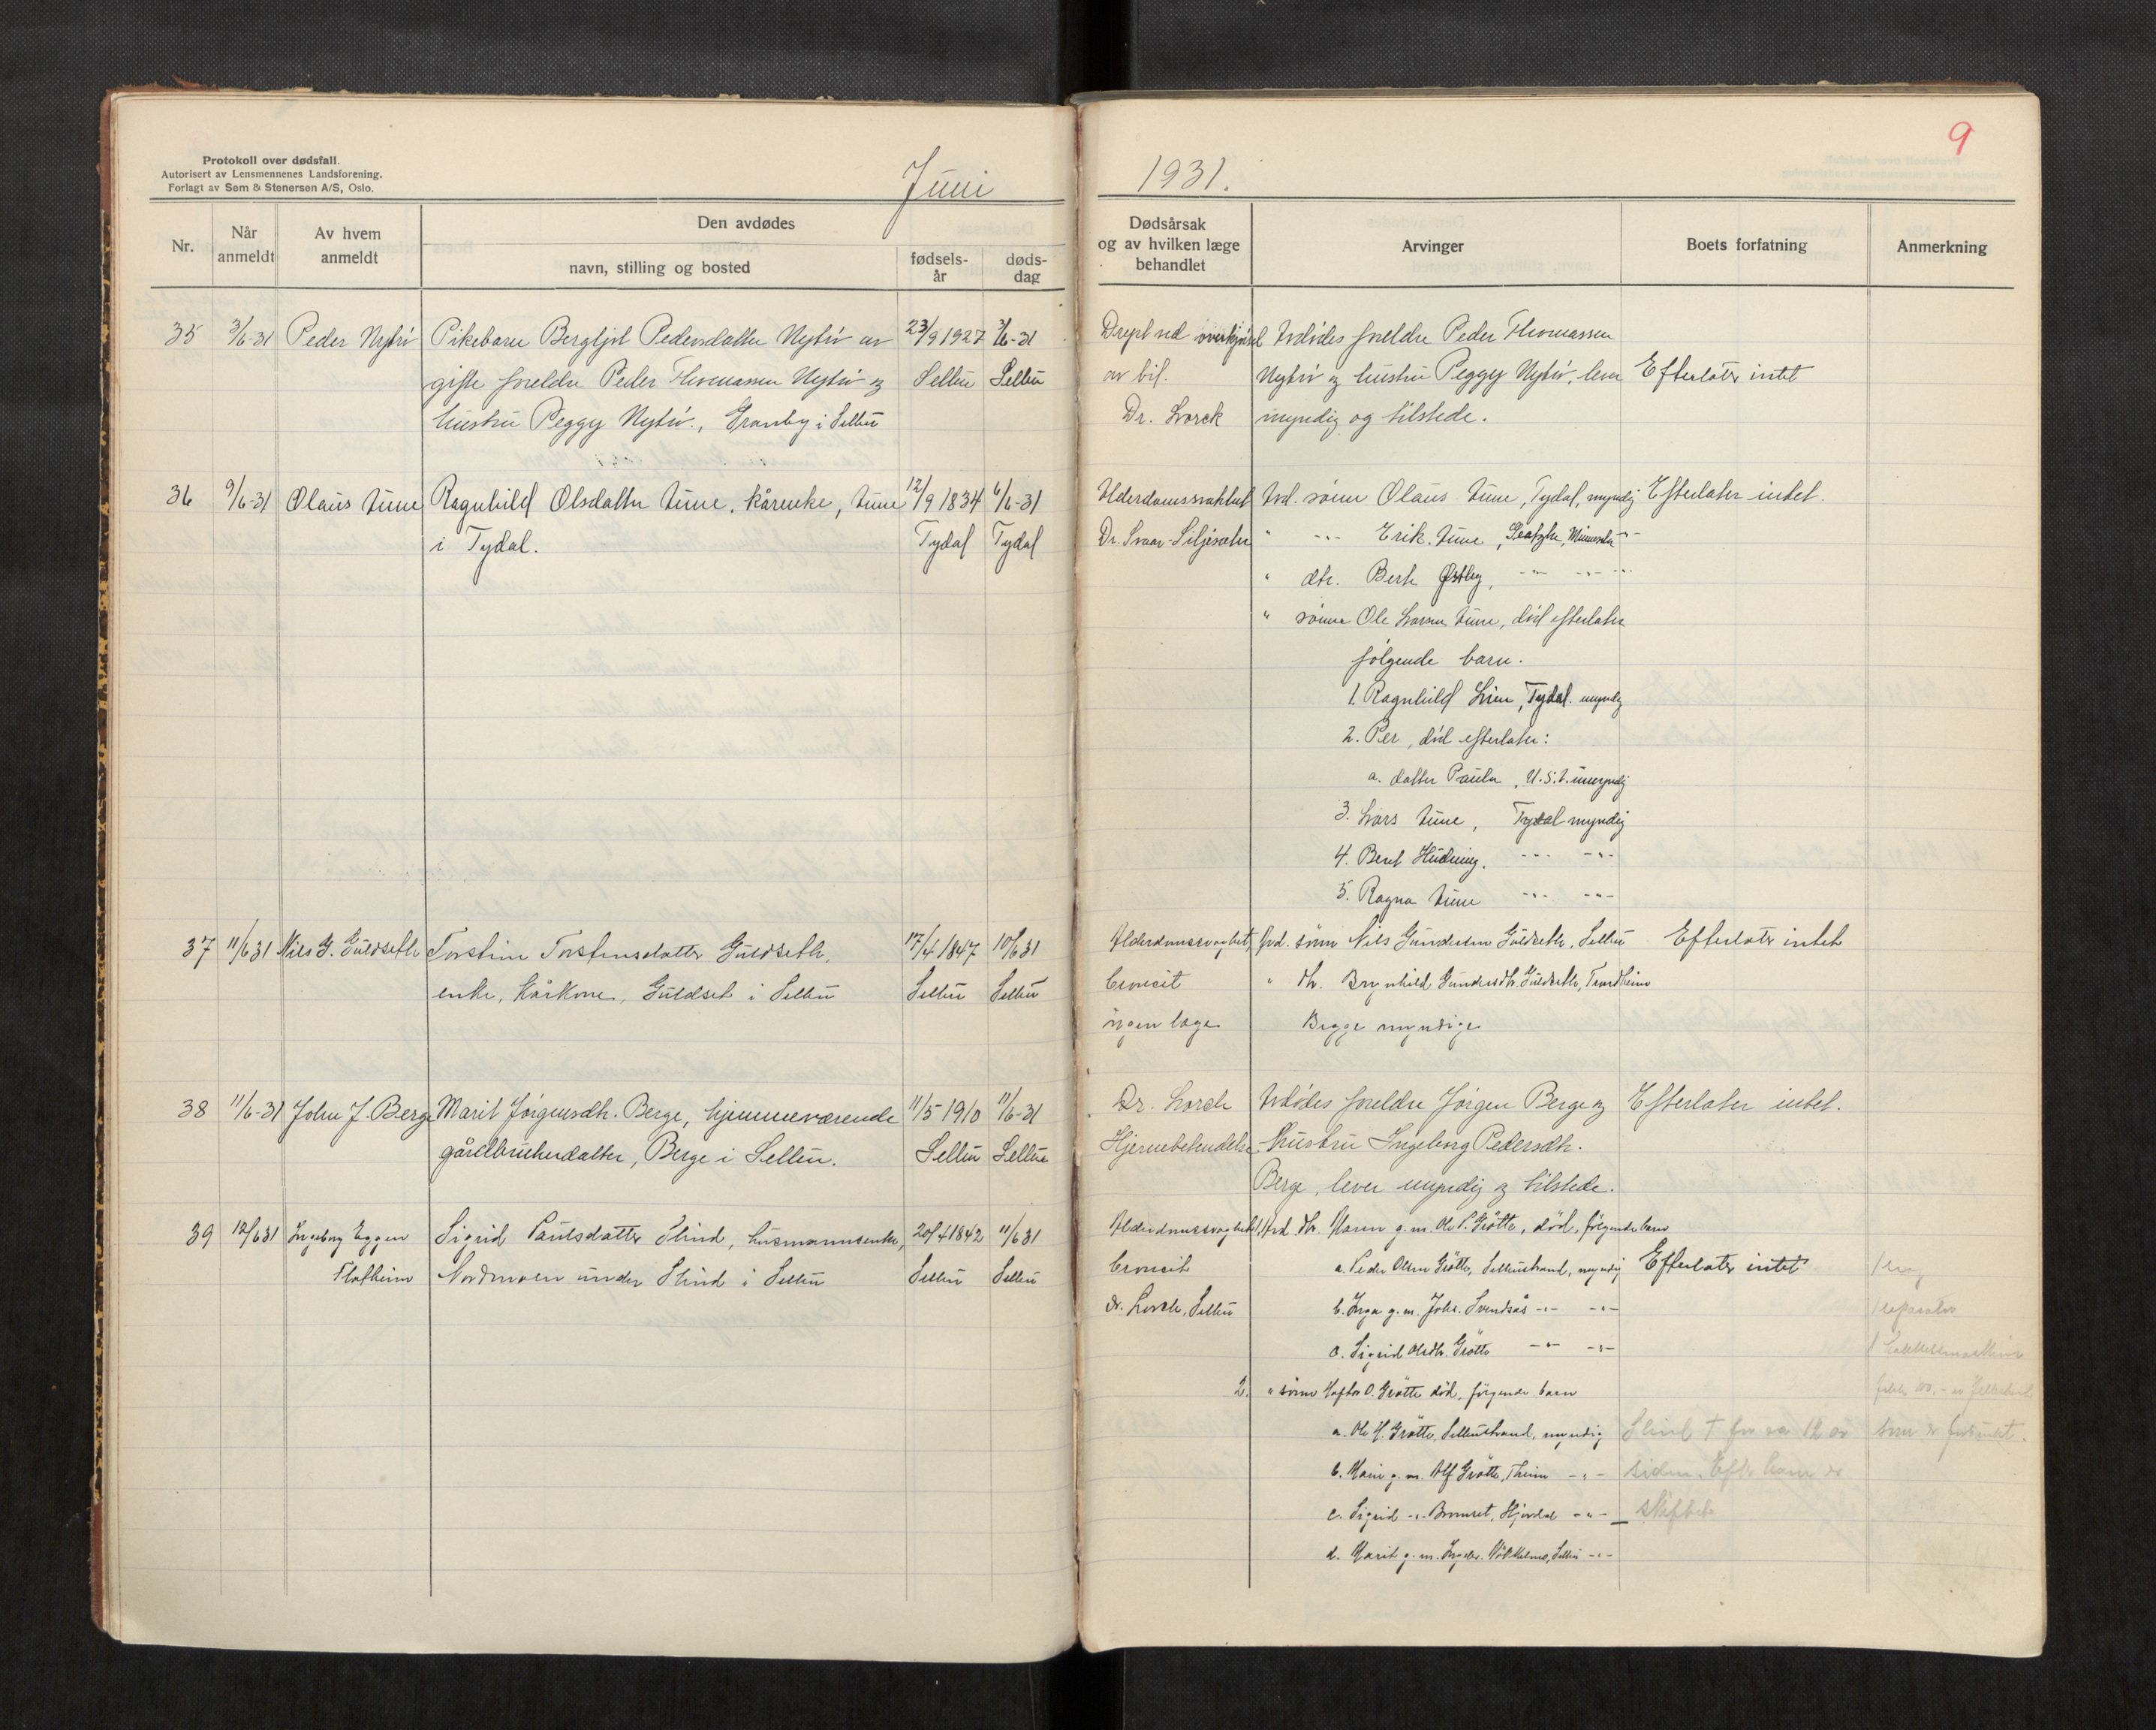 Protokoll over dødsfall.
Autorisert av Lensmennenes Landsforening.
Forlagt av Sem & Stenersen A/S, Oslo.
Juni
Nr.
Når anmeldt
Av hvem anmeldt
Den avdødes
navn, stilling og bosted
fødsels-år
døds-dag
35 3/6-31 Peder Nytrø Pikebarn Bergljot Pedersdatter Nytrø av 23/9 1927 3/6-31
gifte foreldre Peder Thomassen Nytrø og Selbu Selbu
hustru Peggy Nytrø., Granby i Selbu
36 9/6-31 Olaus Aune Ragnhild Olsdatter Aune, kårenke, Aune 12/9 1834 6/6-31
i Tydal. Tydal Tydal
37 11/6 31 Nils G. Guldseth Torstina Torstensdatter Guldseth, 17/4 1847 10/6 31
enke, kårkone, Guldset i Selbu Selbu Selbu
38 11/6-31 John J. Berge Marit Jørgensdtr. Berge, hjemmeværende 11/5 1910 11/6-31
gårdbrukerdatter, Berge i Selbu. Selbu Selbu
39 12/6 31 Ingeborg Eggen Sigrid Paulsdatter Slind, husmannsenke, 20/4 1842 11/6 31
Flatheim Nordmoen under Slind i Selbu Selbu Selbu
9
1931.
Dødsårsak
og av hvilken læge
behandlet
Arvinger
Boets forfatning
Anmerkning
Drept ved overkjørsel Avdødes foreldre Peder Thomassen
av bil. Nytrø og hustru Peggy Nytrø, lever Efterlater intet
Dr. Lorck myndig og tilstede.
Alderdomssvakhet Avd. sønn Olaus Aune, Tydal, myndig Efterlater intet.
Dr. Svaar-Seljesæter " -"- Erik Aune,
" dtr. Berit Østby, -"- -"-
" sønn Ole Larsen Aune, død efterlater
følgende barn.
1. Ragnhild Lien, Tydal. myndig
2. Per, død efterlater:
a. datter Paula, U.S.A. umyndig
3. Lars Aune, Tydal myndig
4. Berit Hudning. -"- -"-
5. Ragna Aune -"- -"-
Alderdomssvaghet, Avd. sønn Nils Gundersen Guldseth, Selbu Efterlater intet
broncit " dtr. Brynhild Gundersdtr. Guldseth, Trondheim
ingen læge Begge myndige
Dr. Lorck Avdødes foreldre Jørgen Berge og Efterlater intet.
Hjernebetendelse hustru Ingeborg Pedersdtr.
Berge, lever myndig og tilstede.
Alderdomssvaghet 1. Avd. dtr. Maren g.m. Ole P. Grøtte, død, følgende barn
broncit a. Peder Olsen Grøtte, Selbustrand, myndig Efterlater intet
dr. Lorck, Selbu b. Inga g.m. Johs. Svendsås -"- -"- 1 separator
c. Sigrid Olsdtr. Grøtte -"- -"-
2. " sønn Haftor O. Grøtte død, følgende barn
a. Ole H. Grøtte, Selbustrand, myndig Slind † for ca 12 år som er forbrukt.
b. Marie g.m. Alf Grøtte, Theim -"- siden. Efter ham er
c. Sigrid -"- -"- skiftet
d. Marit g.m. Selbu -"-